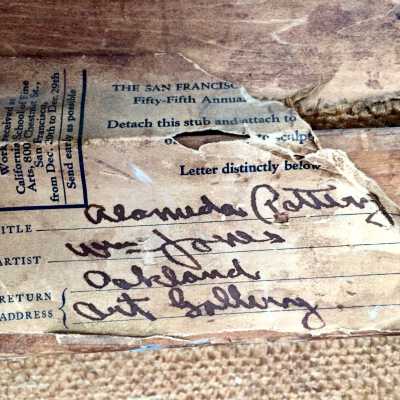 Work received at
California School of Fine
Arts, 800 Chestnut St.,
San Francisco,
from Dec. 28th to Dec. 29th
Send early as possible
THE SAN FRANCISC
Fifty-Fifth Annua
Detach this stub and attach to
o to sculpt
Letter distinctly below
TITLE Alameda (Pottery
ARTIST Wm Jones
RETURN Oakland
ADDRESS Art Gallery